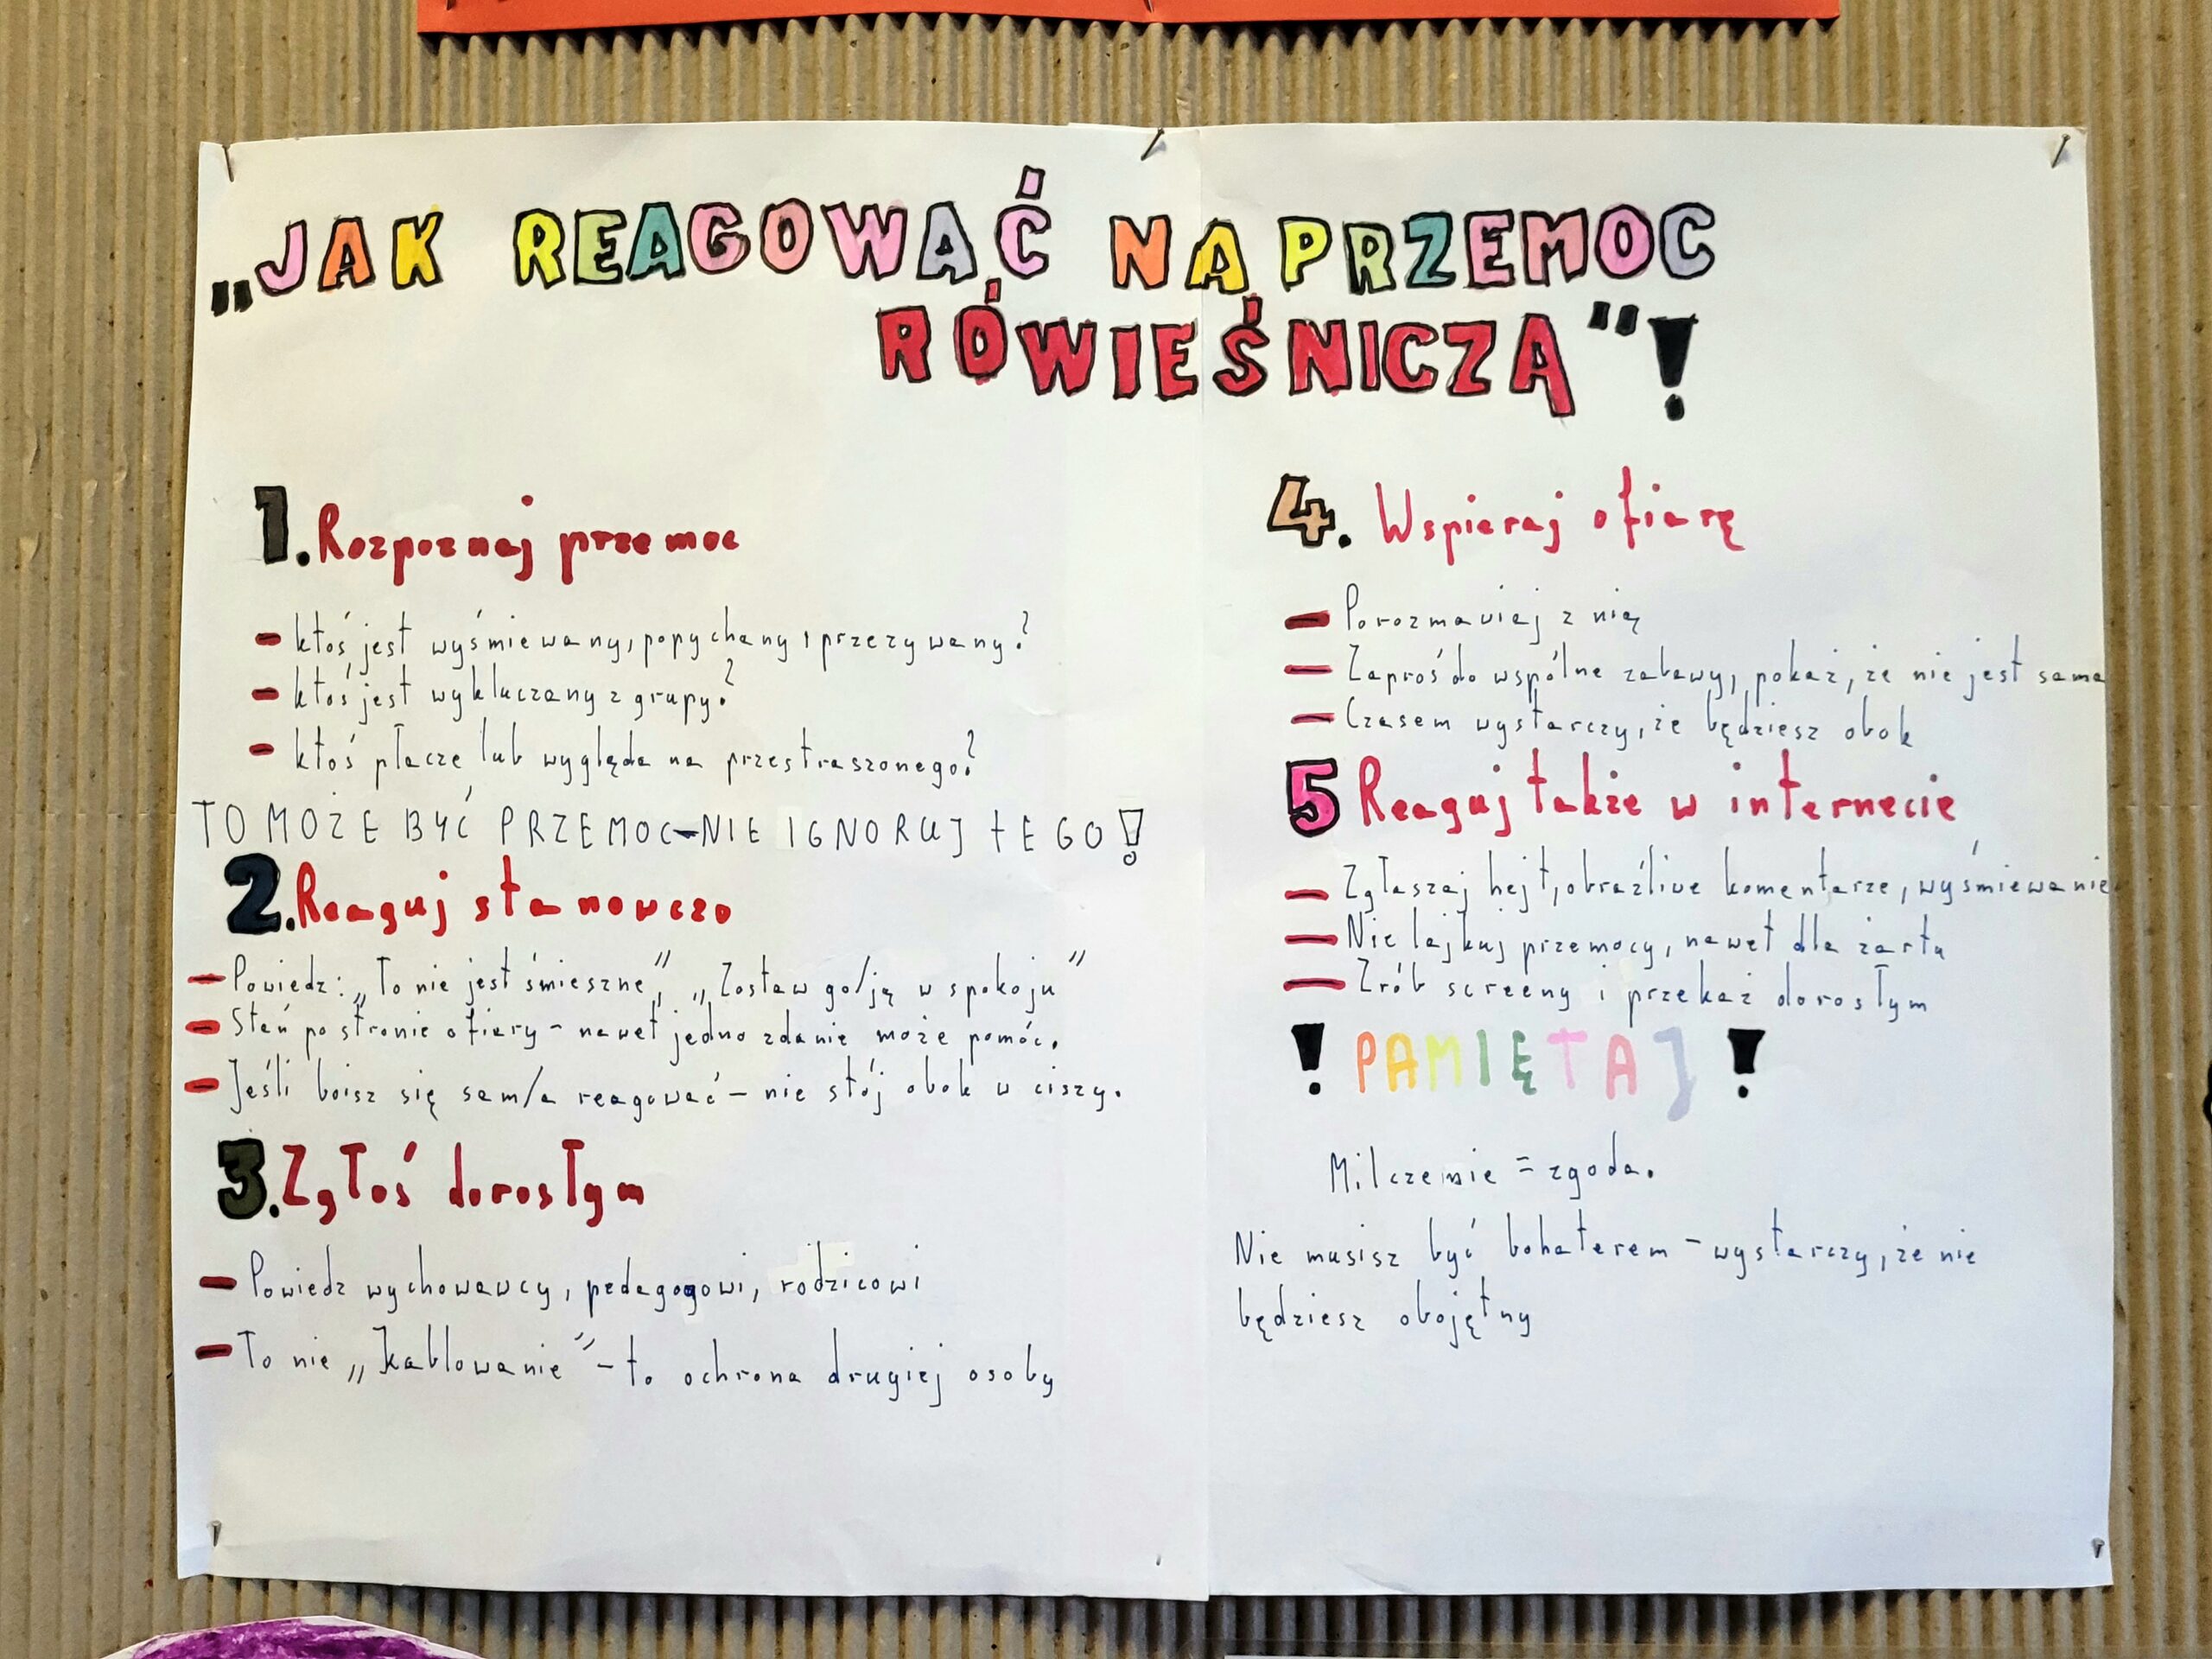 „JAK REAGOWAĆ NA PRZEMOC
RÓWIEŚNICZĄ"!
1. Rozpoznaj przemoc
- ktoś jest wyśmiewany, popychany, przezywany?
- ktoś jest wykluczany z grupy?
- ktoś płacze lub wygląda na przestraszonego?
TO MOŻE BYĆ PRZEMOC-NIE IGNORUJ TEGO!
2. Reaguj stanowczo
- Powiedz: „To nie jest śmieszne", „Zostaw go/ją w spokoju"
- Stań po stronie ofiary - nawet jedno zdanie może pomóc.
- Jeśli boisz się sam/a reagować - nie stój obok w ciszy.
3. Zgłoś dorosłym
- Powiedz wychowawcy, pedagogowi, rodzicowi
- To nie „kablowanie" - to ochrona drugiej osoby
4. Wspieraj ofiarę
- Porozmawiaj z nią
- Zaproś do wspólne zabawy, pokaż, że nie jest sama
- Czasem wystarczy, że będziesz obok
5 Reaguj także w internecie
- Zgłaszaj hejt, obraźliwe komentarze, wyśmiewanie
- Nie lajkuj przemocy, nawet dla żartu
- Zrób screeny i przekaż dorosłym
! PAMIĘTAJ !
Milczenie = zgoda.
Nie musisz być bohaterem - wystarczy, że nie
będziesz obojętny